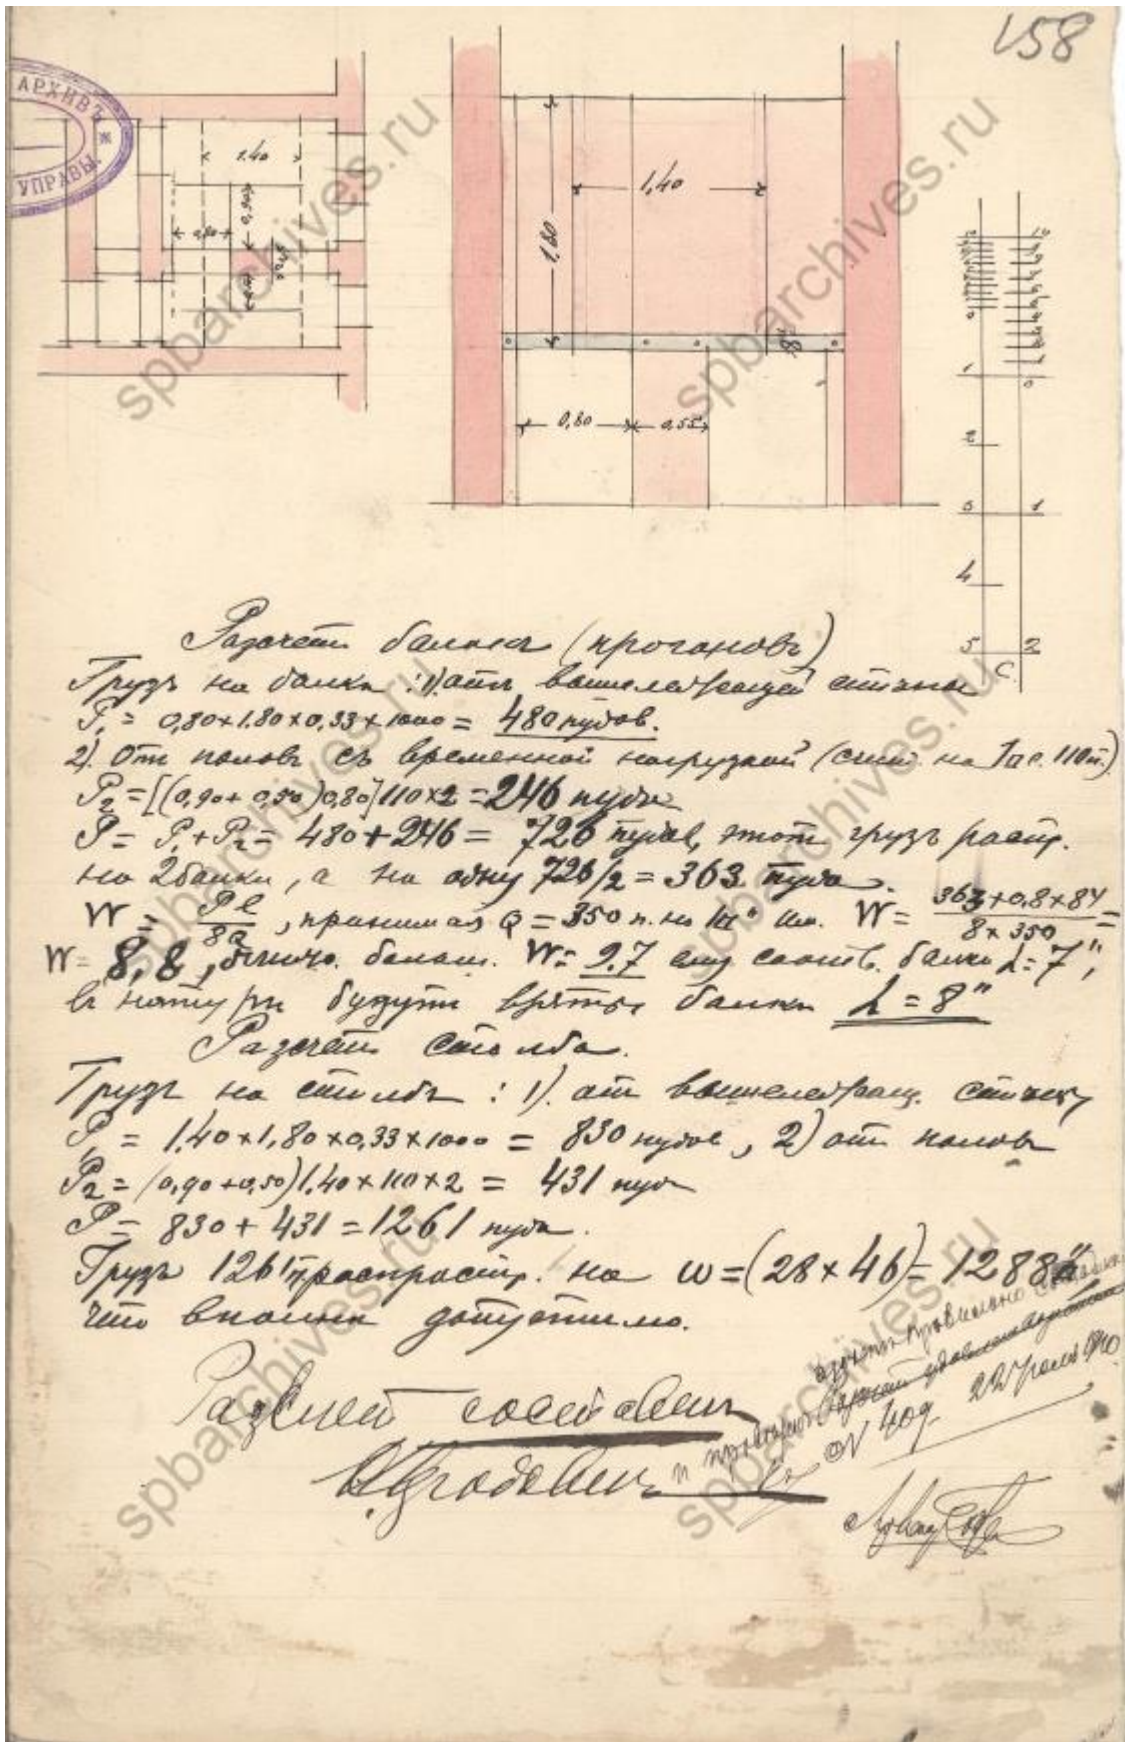 158
АРХИВЪ
УПРАВЫ.
1.40
0,80
0,90
1,40
1,80
8"
0,80
0,55
1
2
3
4
5
0
1
2
С.
Разсчетъ балокъ (прогоновъ)
Грузъ на балки: 1) отъ вышележащей стѣны
P₁ = 0,80×1.80×0,33×1000 = 480 пудов.
2). Отъ половъ съ временной нагрузкой (счит. на 1 □ с. 110 п.)
P₂ = [(0,90+0,50)0,80]110×2 = 246 пуда
P = P₁ + P₂ = 480 + 246 = 726 пудов, этотъ грузъ распр.
на 2 балки, а на одну 726/2 = 363 пуда.
W = Pl/8Q, принимая Q = 350 п. на 1□" W = 363×0.8×84/8×350 =
W = 8,8, балки. W = 9.7 ему соотв. балка h = 7",
въ натурѣ будутъ взяты балки h = 8"
Разсчетъ столба.
Грузъ на столбъ: 1). отъ вышележащ. стѣнки
P₁ = 1.40×1,80×0,33×1000 = 830 пудов, 2) отъ половъ
P₂ = (0,90+0,50)1.40×110×2 = 431 пуд
P = 830 + 431 = 1261 пуда.
Грузъ 1261 п. распростр. на ω = (28×46) = 1288□"
что вполнѣ допустимо.
Разсчетъ составилъ
правильно
22
№ 409.